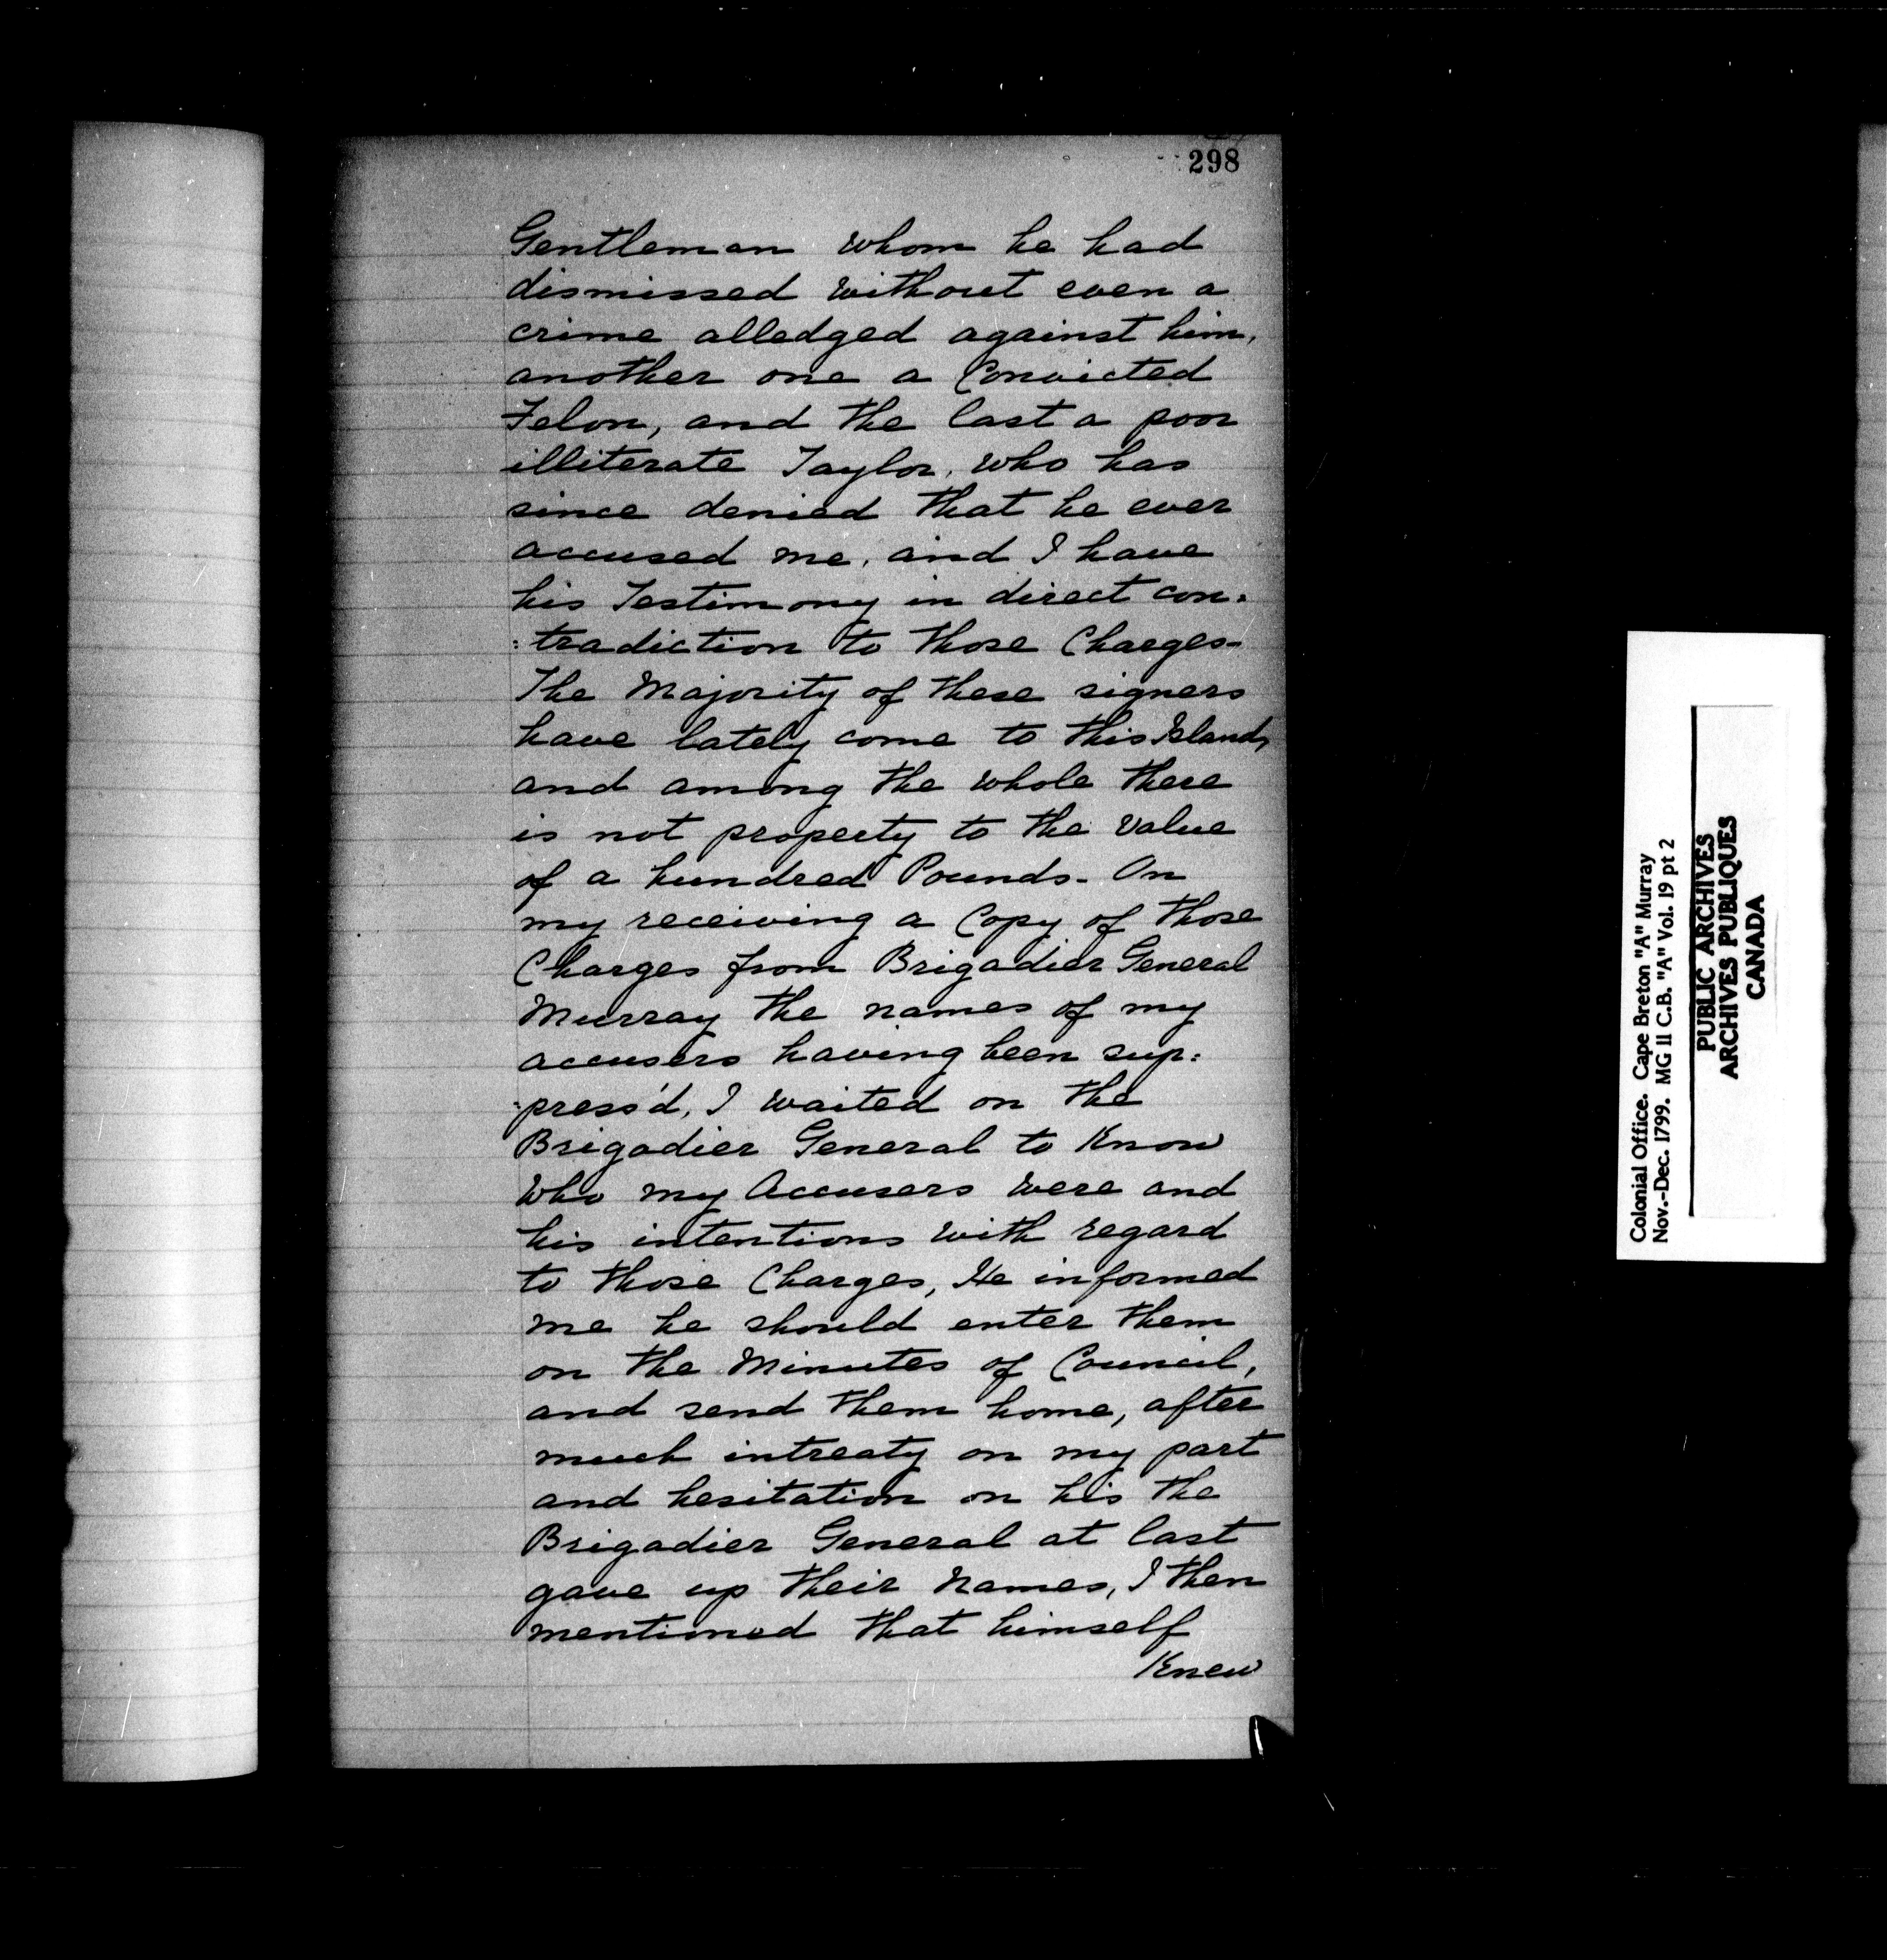 298
Gentleman whom he had
dismissed without even a
crime alledged against him,
another one a Convicted
Felon, and the last a poor
illiterate Taylor, who has
since denied that he ever
accused me, and I have
his Testimony in direct con:
:tradiction to those Charges-
The Majority of these signers
have lately come to this Island,
and among the whole there
is not property to the value
of a hundred Pounds- On
my receiving a Copy of those
Charges from Brigadier General
Murray the names of my
accusers having been sup:
:press'd, I waited on the
Brigadier General to Know
who my Accusers were and
his intentions with regard
to those Charges, He informed
me he should enter them
on the Minutes of Council,
and send them home, after
much intreaty on my part
and hesitation on his the
Brigadier General at last
gave up their names, I then
mentioned that himself
Knew
Colonial Office. Cape Breton "A" Murray
Nov.-Dec. 1799. MG 11 C.B. "A" Vol. 19 pt 2
PUBLIC ARCHIVES
ARCHIVES PUBLIQUES
CANADA